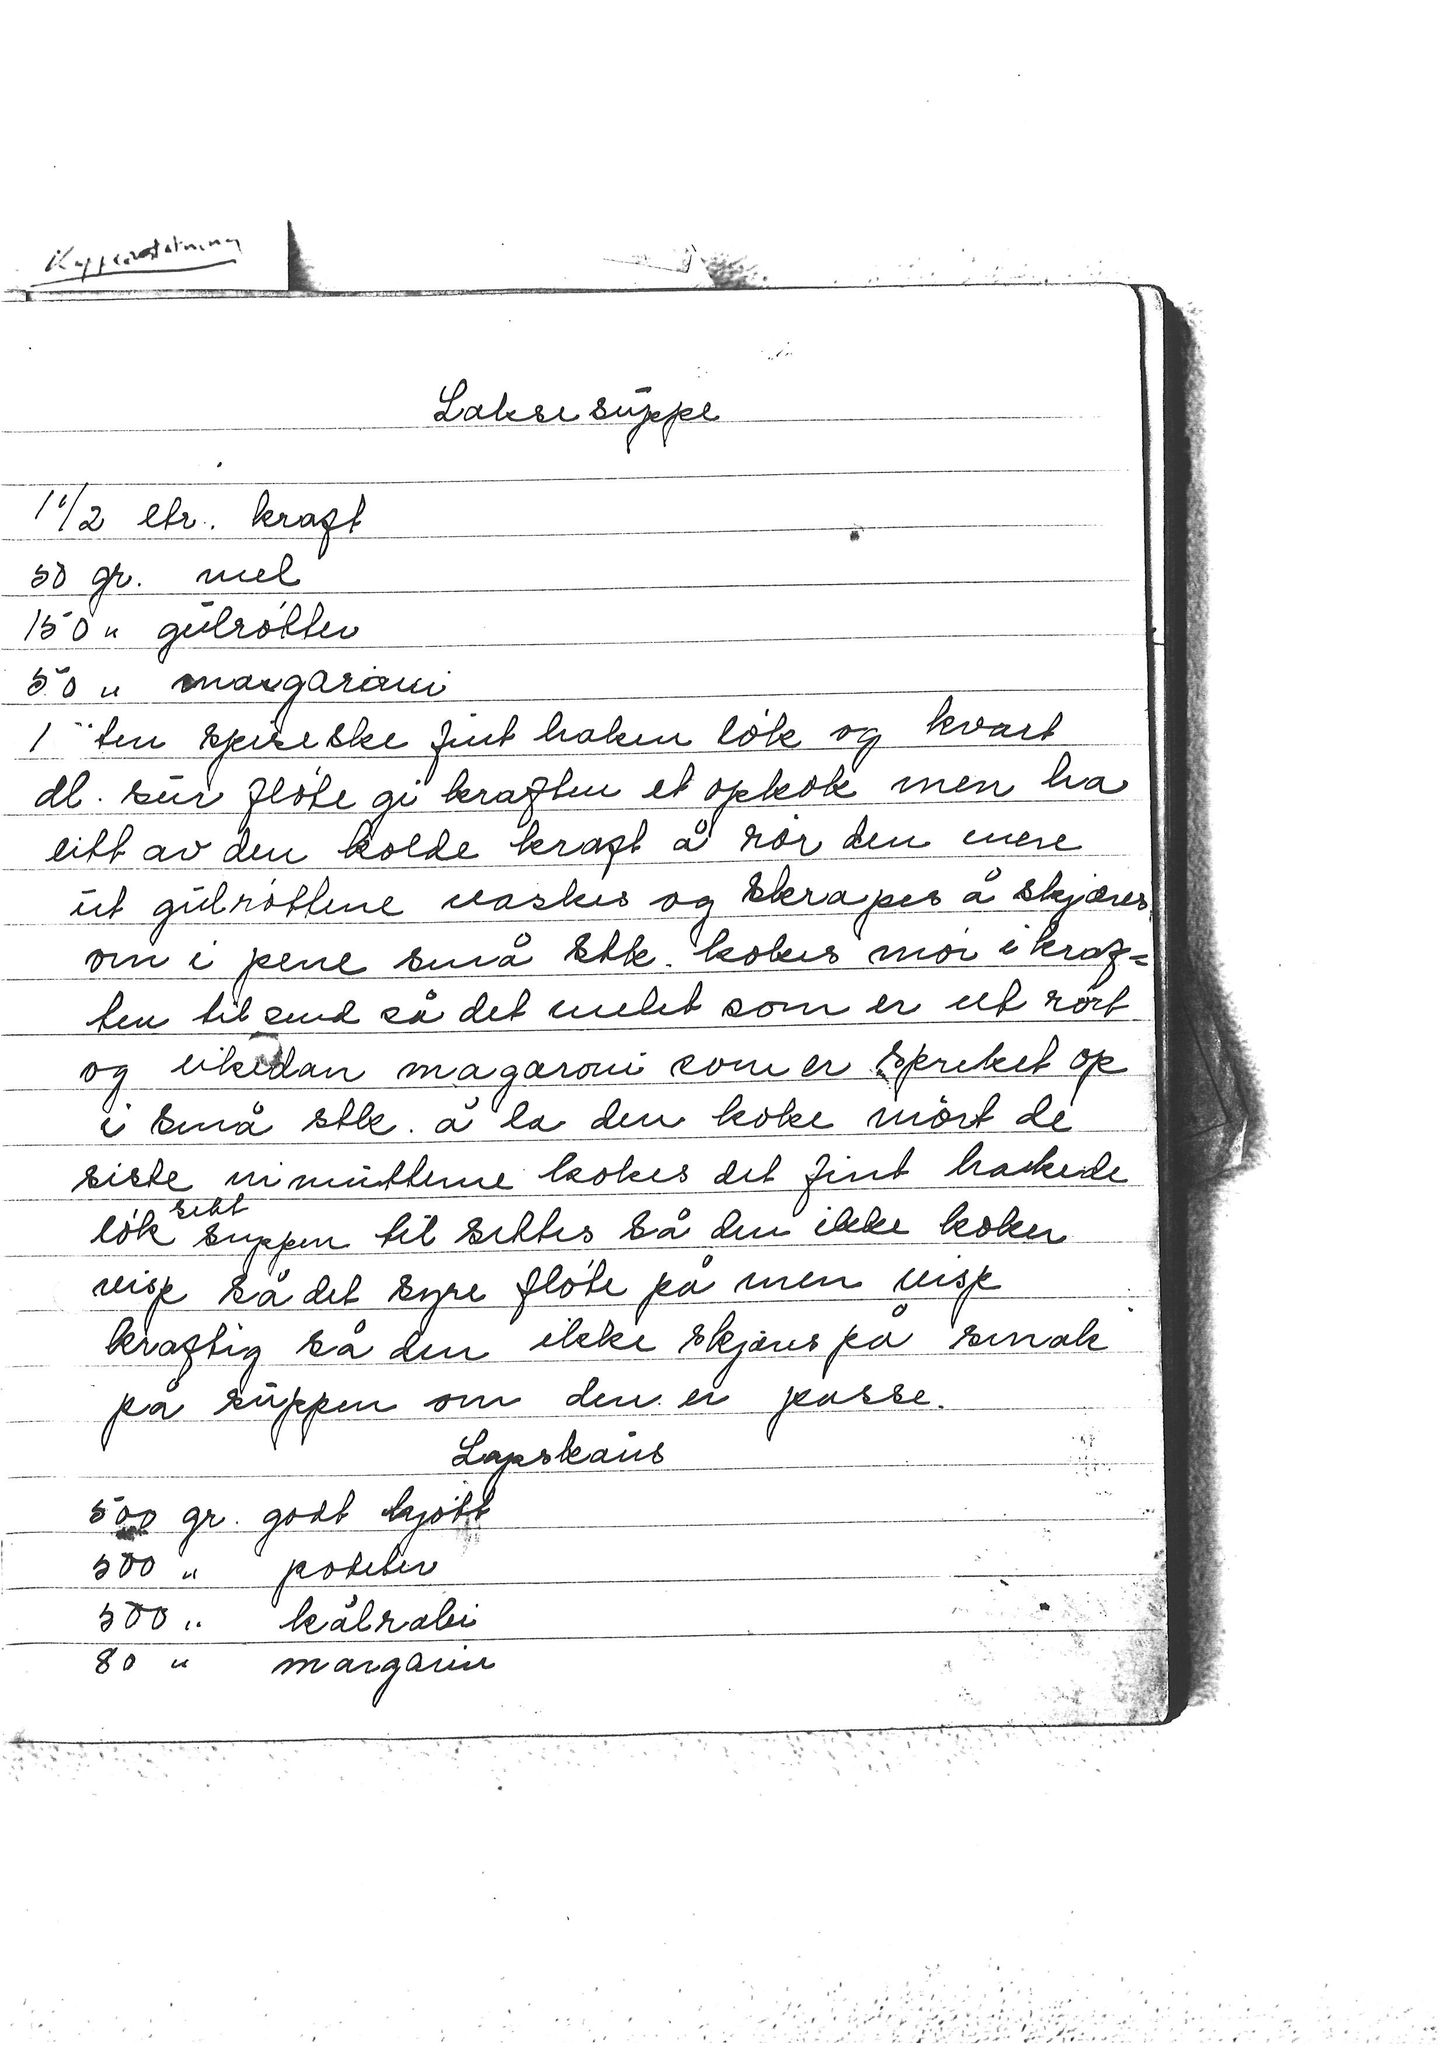 Laksesuppe
1 1/2 ltr. kraft
50 gr. mel
150 " gulrötter
50 " margaroni
1 ten spiseske fint haken lök og kvart
dl. sur flöte gi kraften et opkok men ha
litt av den kolde kraft å rör den mere
ut gulröttene vaskes og skrapes å skjæres
om i pene små stk. kokes mör i kraf=
ten til send så det melet som er ut rört
og likedan magaroni som er spreket op
i små stk. å la den koke mört de
siste minuttene kokes det fint hackede
lök sett suppen til settes så den ikke koker
visp så det syre flöte på men visp
kraftig så den ikke skjæres på smak
på suppen om den er passe.
Lapskaus
500 gr. godt kjött
500 " poteter
500 " kålrabi
80 " margarin